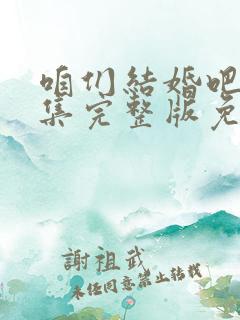 咱们结婚吧
集完整版免
謝祖武
未经同意禁止转载